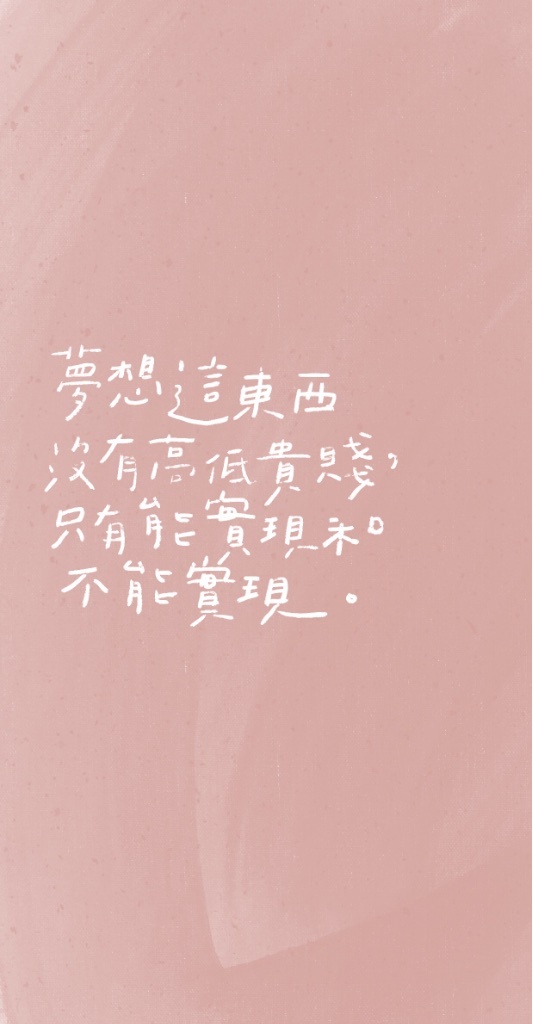 夢想這東西
沒有高低貴賤，
只有能實現和
不能實現。